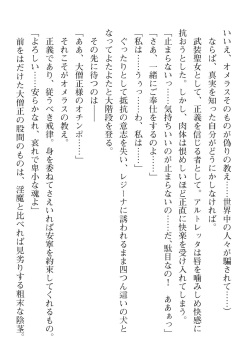 いいえ、オメラスそのものが偽りの教え……世界中の人々が騙されて……）
ならば、真実を知った自分がどうにかしなければ。
武装聖女として、正義を信じる者として。アルトレッタは唇を噛みしめ快感に
抗おうとした。しかし、肉体は恨めしいほど正直に快楽を受け入れてしまう。
「止まらないっ……気持ちいいのが止まらないの……だ、駄目なの！　ああぁっ」
「さぁ、一緒にご奉仕をするのよ」
「私は……うぅっ……わ、私は……」
ぐったりとして抵抗の意志を失い、レジーナに誘われるまま四つん這いの犬と
なってよたよたと大階段を登る。
その先に待つのは――
「ああ、大僧正様のオチンポ……」
それこそがオメラスの教え。
正義であり、従うべき戒律。身を委ねてさえいれば安寧を約束してくれるもの。
「よろしい……安らかなれ、哀れで卑小な魂よ」
前をはだけた大僧正の股間のものは、淫魔と比べれば見劣りする粗末な陰茎。